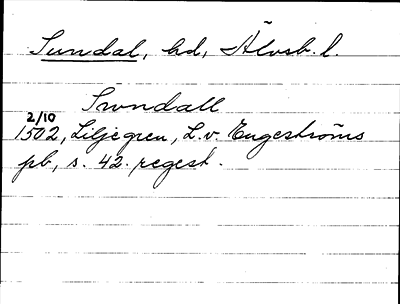 Sundal, hd, Älvsb. l.
Swndall
2/10
1502, Liljegren, L. v. Engeströms
pb, s. 42. regest.